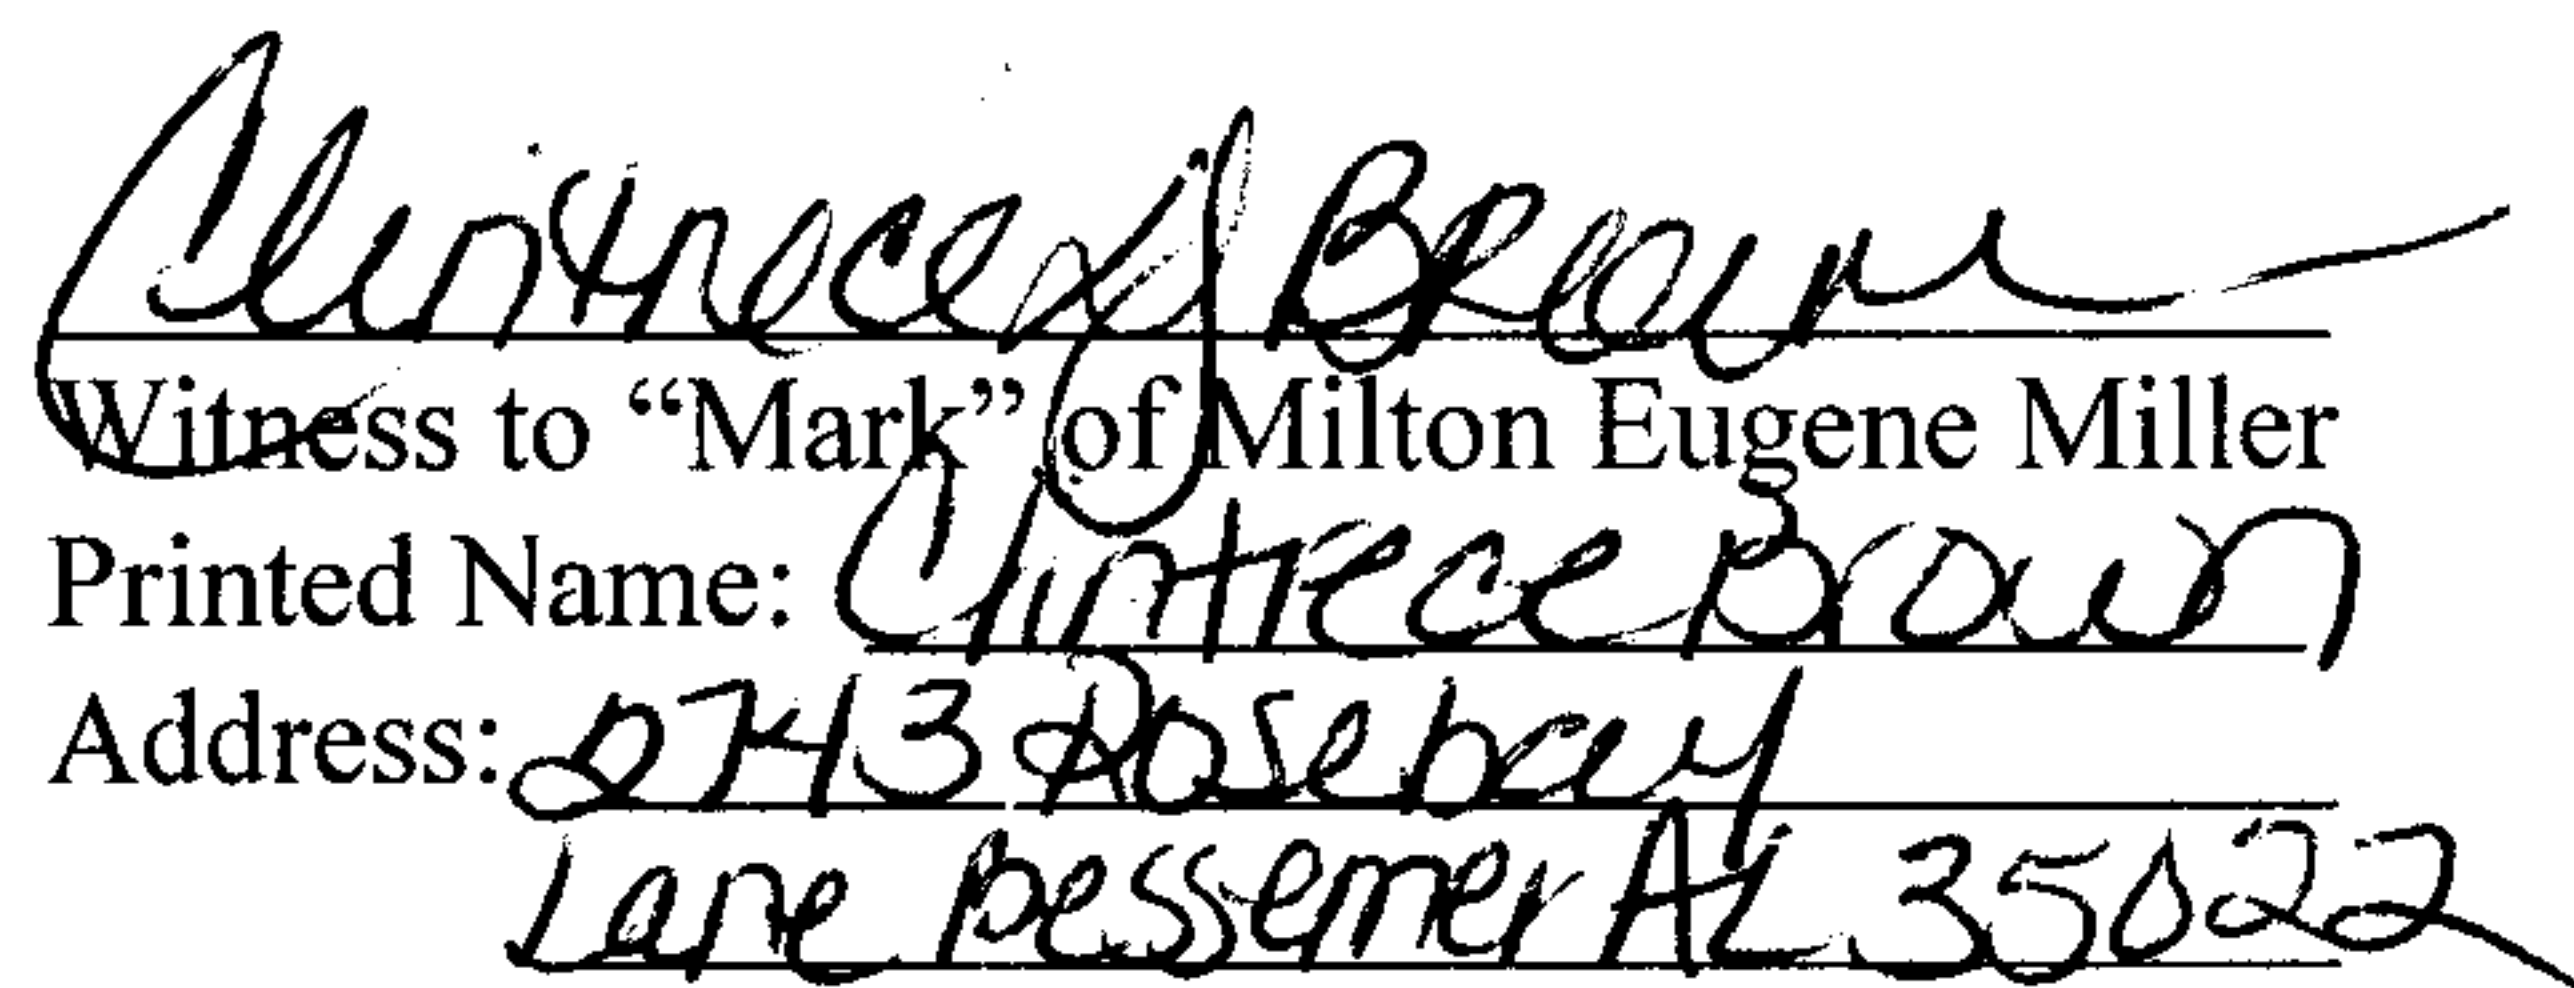 Clintrece Y Brown
Witness to “Mark” of Milton Eugene Miller
Printed Name: Clintrece Brown
Address: 2743 Rosebay
Lane Bessemer AL 35022